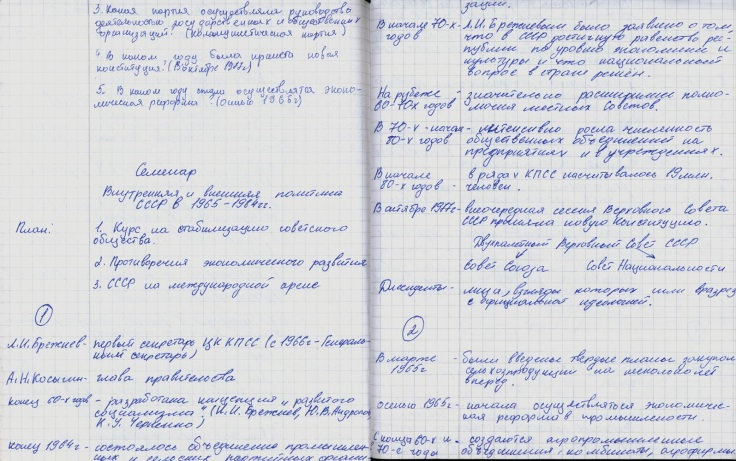 3. Какая партия осуществляла руководство
деятельностью государственных и общественных
организаций? (Коммунистическая партия)
4. В каком году была принята новая
конституция? (В октябре 1977г.)
5. В каком году стала осуществлятся эконо-
мическая реформа (Осенью 1965г)
Семенар
Внутренняя и внешняя политика
СССР в 1965-1984гг.
План:
1. Курс на стабилизацию советского
общества.
2. Противоречия экономического развития
3. СССР на международной арене
1
Л.И.Брежнев- первый секретарь ЦК КПСС (с 1966г - Генераль-
ный секретарь)
А.Н.Косыгин- глава правительства
конец 60-х годов - разработана концепция "развитого
социализма" (Л.И.Брежнев, Ю.В.Андропов,
К.У.Черненко)
конец 1964г - состоялось объединение промышлен-
ных и сельских партийных органи-
зации.
В начале 70-х - Л.И.Брежневым было заявлено о том,
годов что в СССР достигнуто равенство рес-
публик по уровню экономики и
культуры и что национальный
вопрос в стране решён.
На рубеже - значительно расширение полно-
60-70х годов мочия местных Советов.
В 70-х - начале - интенсивно росла численность
80-х годов общественных объединений на
предприятиях и в учреждениях.
В начале в рядах КПСС насчитывалось 19 млн.
80-х годов - человек.
В октябре 1977г - внеочередная сессия Верховного Совета
СССР приняла новую Конституцию.
Двупалатный Верховный Совет СССР
Совет Союза Совет Национальности
Диссиденты - лица, взгляды которых шли вразрез
с официальной идеологией.
2
В марте - были введены твердые планы закупок
1965г сельхозпродукции на несколько лет
вперед.
осенью 1965г - начала осуществляться экономичес-
кая реформа в промышленности.
С конца 60-х и - создаются агропромышленные
70-е годы объединения: комбинаты, агрофирмы